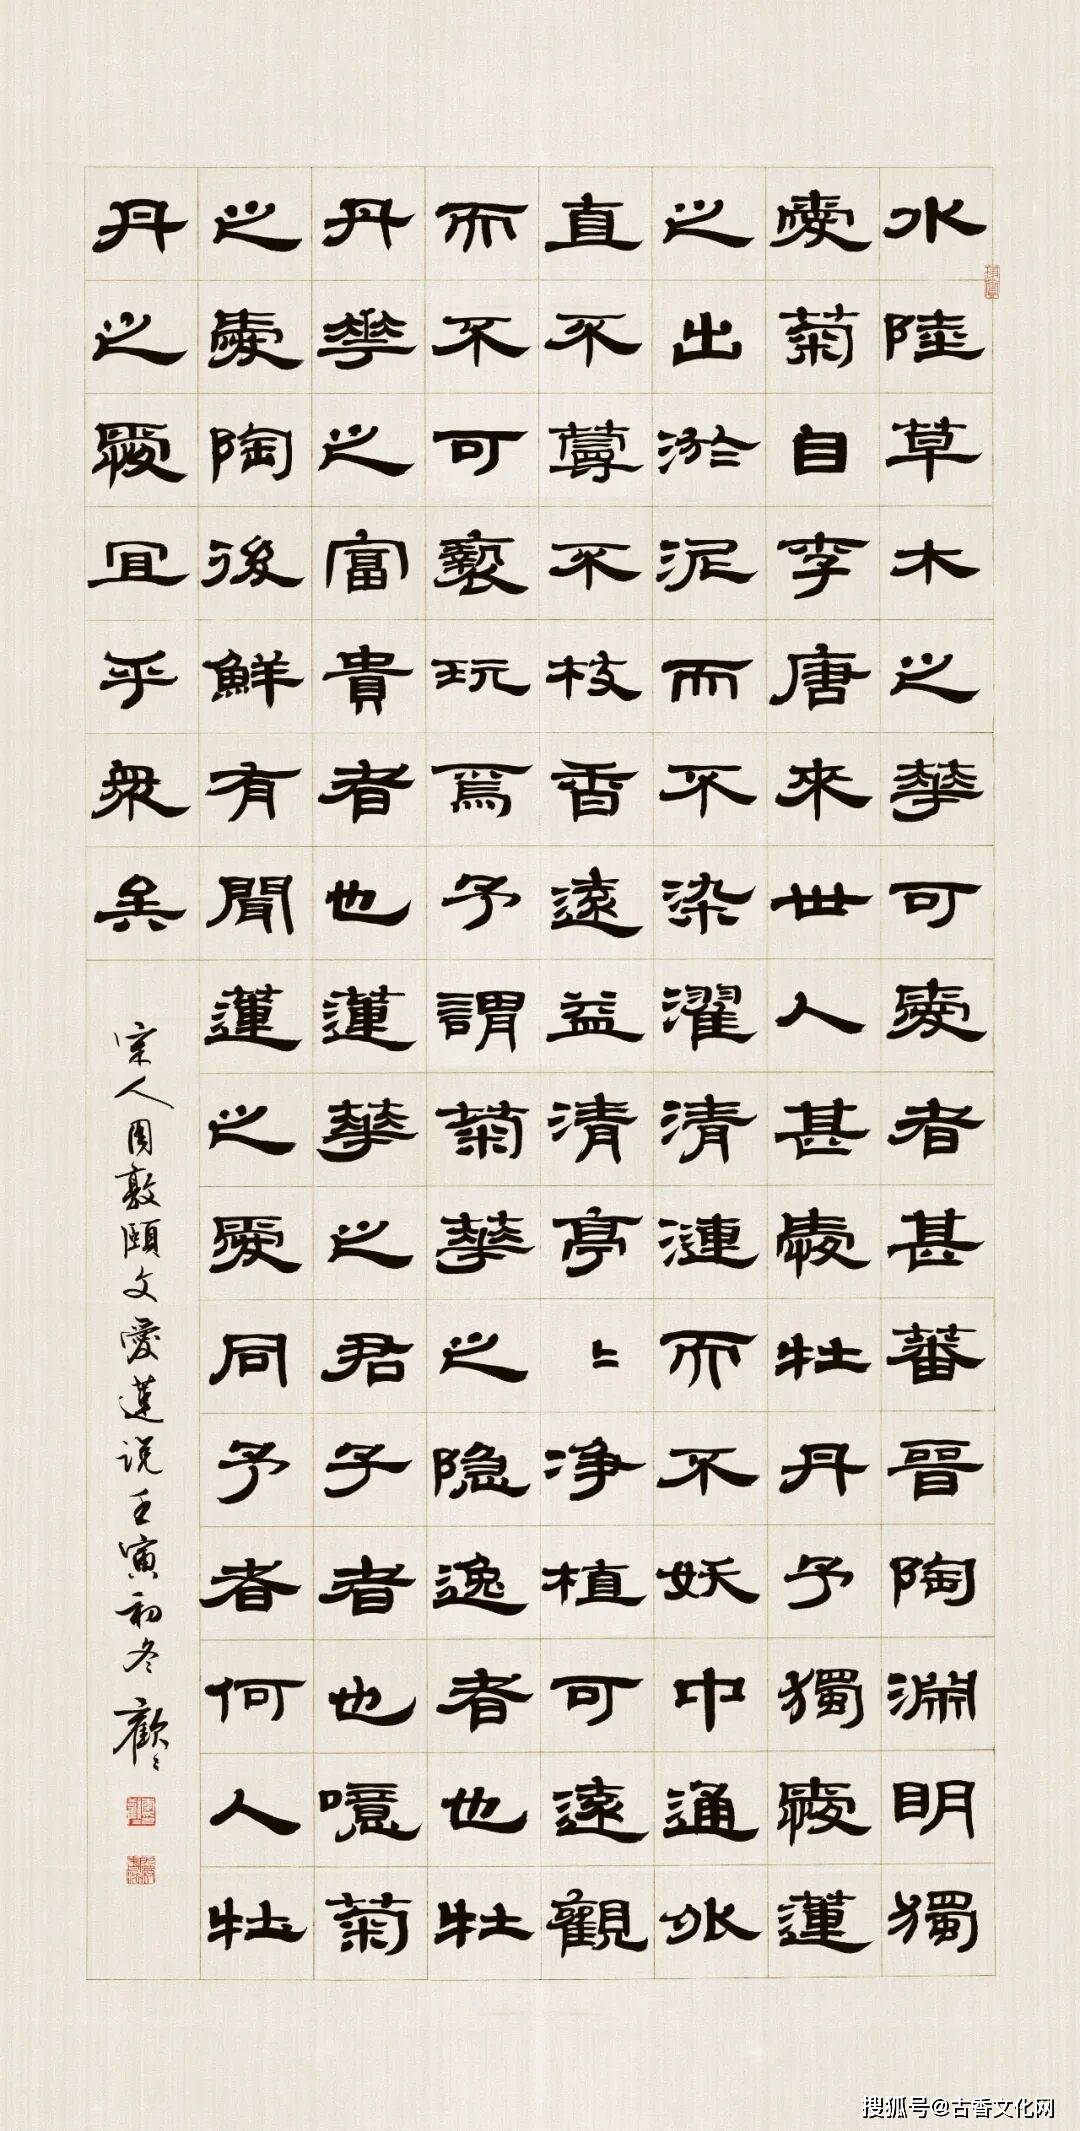 水陸草木之華可愛者甚蕃晉陶淵明獨
愛菊自李唐來世人甚愛牡丹予獨愛蓮
之出淤泥而不染濯清漣而不妖中通外
直不蔓不枝香遠益清亭〻净植可遠觀
而不可褻玩焉予謂菊華之隐逸者也牡
丹華之富貴者也蓮華之君子者也噫菊
之愛陶後鮮有聞蓮之愛同予者何人牡
丹之愛宜乎衆矣
宋人周敦頤文愛蓮说壬寅初冬歡〻
搜狐号@古香文化网